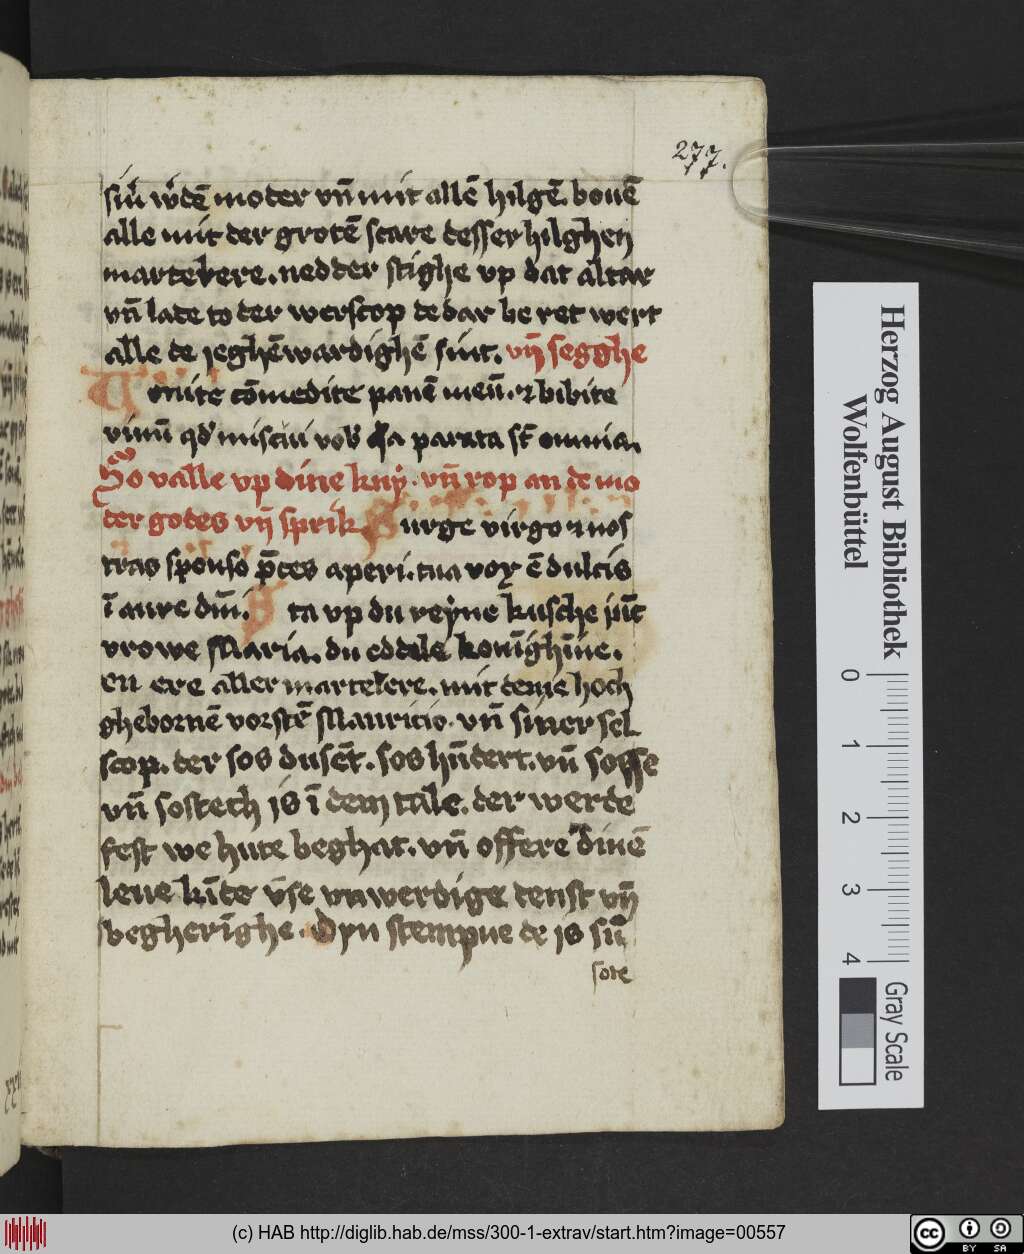 277.
siner werdē moder vn̄ mit allē hilgē. bouē
alle mit der grotē scare desser hilghen
martelere. nedder stighe vp dat altar
vn̄ lade to der werscop de dar be ret wert
alle de ieghēwardighē sint. vn̄ segghe
Venite cōmedite panē meū. ⁊ bibite
vinū qd' miscui vob' q̄a parata st̄ omnia.
So valle vp dine kny. vn̄ rop an de mo
der godes vn̄ sprik Surge virgo ⁊ nos
tras sponso p̄ces aperi. tua vox ē dulcis
ī aure dn̄i. Sta vp du reyne kusche iūc
vrowe Maria. du eddele konīghīne.
en ere aller martelere. mit deme hoch
ghebornē vorstē Mauricio. vn̄ siner sel
scop. der sos dusēt. sos hūdert. vn̄ sosse
vn̄ sostech is ī dem tale. der werde
fest we hute beghat. vn̄ offere dinē
leue kīde vse vnwerdige denst vn̄
begherīghe. Dyn stempne de is sū
sote
Herzog August Bibliothek
Wolfenbüttel
0 1 2 3 4
Gray Scale
(c) HAB http://diglib.hab.de/mss/300-1-extrav/start.htm?image=00557
cc BY SA